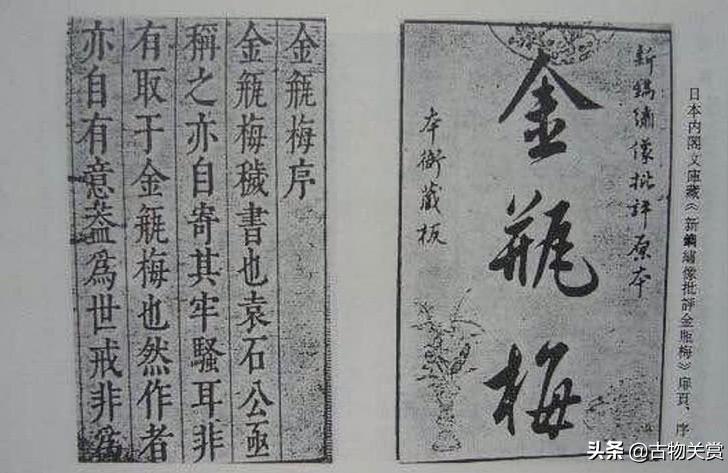 日本内閣文庫藏《新鐫繡像批評金瓶梅》扉頁、序
新鐫繡像批評原本
金瓶梅
本衙藏板
金瓶梅序
金瓶梅穢書也袁石公亟
稱之亦自寄其牢騷耳非
有取于金瓶梅也然作者
亦自有意葢爲世戒非爲
头条 @古物关赏